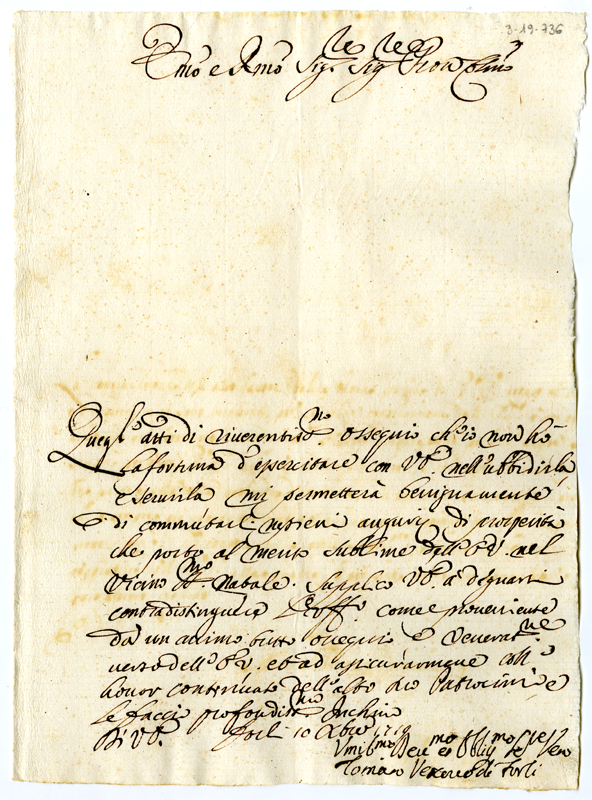 3-19-736
Emo e Rmo Sigr Sig Pron Colmo
Quegl'atti di riverentismo ossequio ch'io non hò
la fortuna d'esercitare con V.E. nell'ubbidirla,
e servirla mi permetterà benignamente
di commutarli ne' sinceri augurij di prosperità
che porto al merito sublime dell'E.V. nel
vicino Smo natale. Supplico V.E. à degnarsi
contradistinguere l'uffo come proveniente
da un animo tutto ossequio e venerat.ne
verso dell'E.V. et ad assicurarmene coll'
honor continuato dell'alto suo Patrocinio e
le faccio profondismo Inchino
Di V.E. Forlì 10 Xbre 1719
Umilmo Deve et Obligmo Serve Vero
Tomaso Vescovo di Forlì